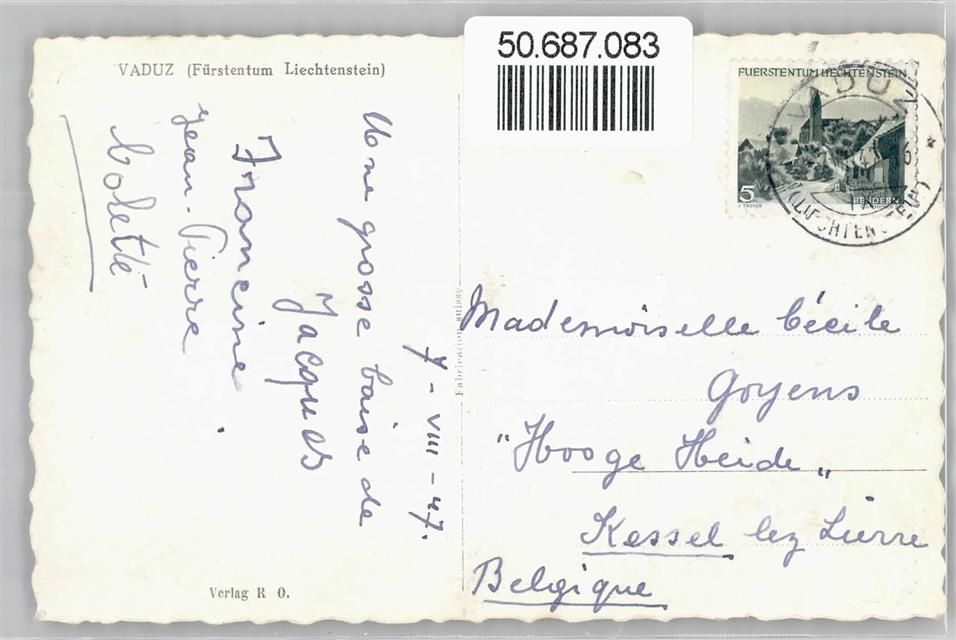 50.687.083
VADUZ (Fürstentum Liechtenstein)
7-VIII-47.
Une grosse baise de
Jacques
Francine
Jean-Pierre
Colette
Verlag R O.
Fabrication suisse
FUERSTENTUM LIECHTENSTEIN
5
BENDERN
VADUZ
(LIECHTENSTEIN)
Mademoiselle Cécile
Goyens
"Hooge Heide"
Kessel lez Lierre
Belgique